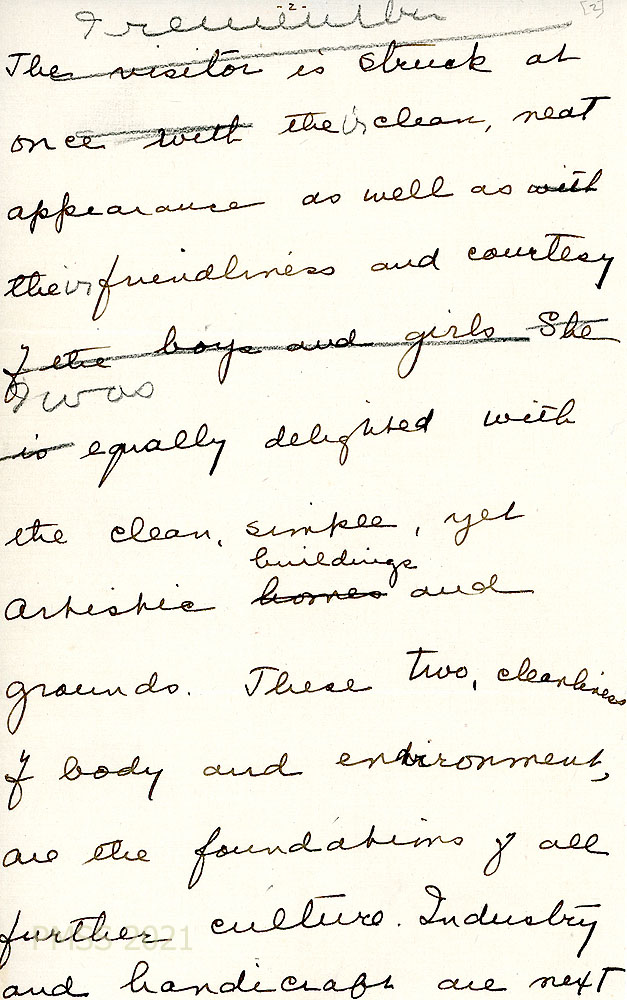 -2-
[2]
I remember
The visitor is struck at
once with their clean, neat
appearance as well as with
their friendliness and courtesy
of the boys and girls She
I was
is equally delighted with
the clean, simple, yet
buildings
artistic homes and
grounds. These two, cleanliness
of body and environment,
are the foundations of all
further culture. Industry
PMSS 2021
and handicraft are next